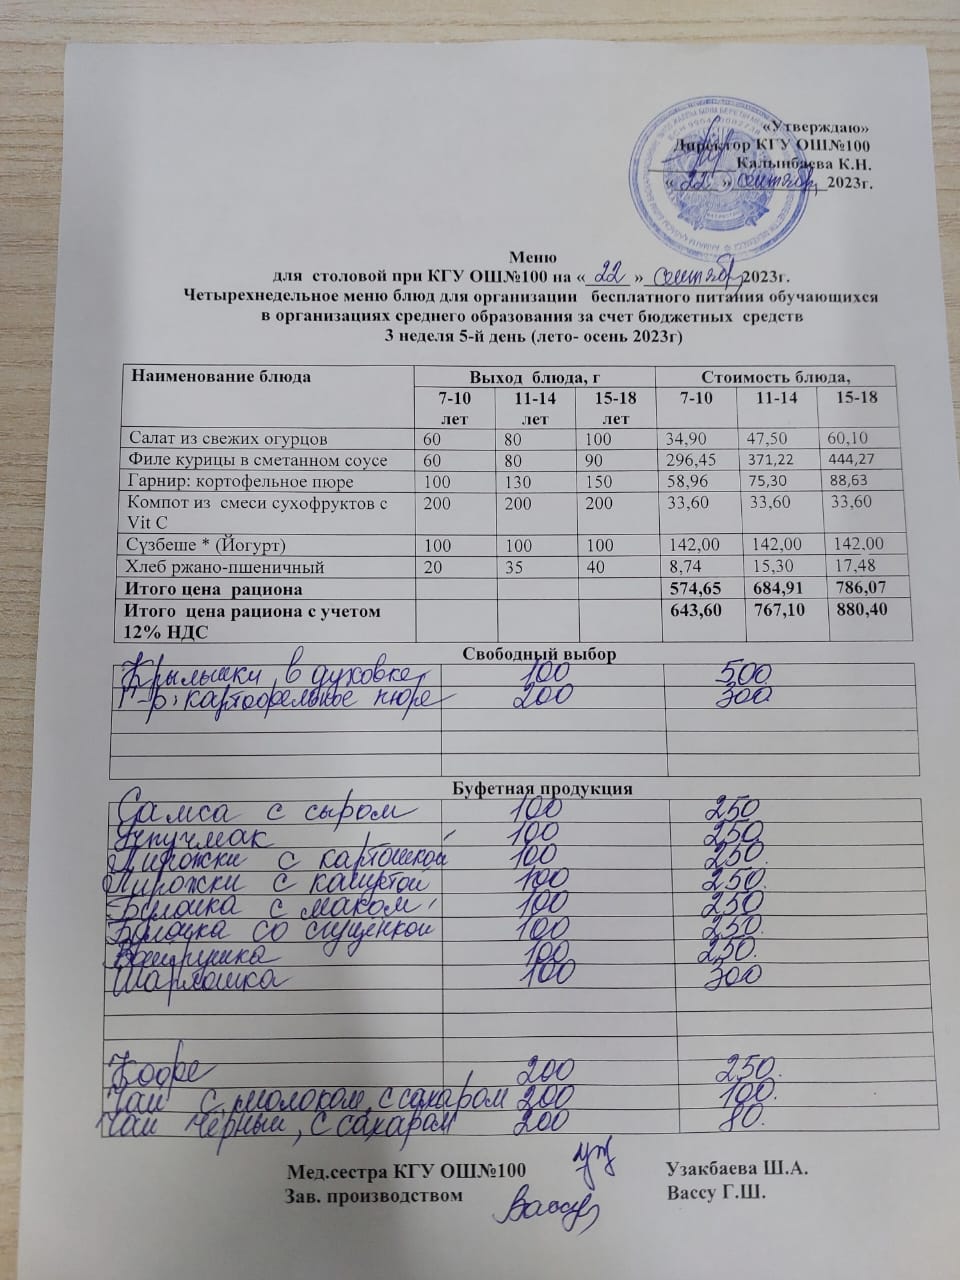 «Утверждаю»
Директор КГУ ОШ№100
Калынбаева К.Н.
« 22 » сентябрь 2023г.
Меню
для столовой при КГУ ОШ№100 на « 22 » сентябрь 2023г.
Четырехнедельное меню блюд для организации бесплатного питания обучающихся
в организациях среднего образования за счет бюджетных средств
3 неделя 5-й день (лето- осень 2023г)
Наименование блюда Выход блюда, г Стоимость блюда,
7-10 лет 11-14 лет 15-18 лет 7-10 11-14 15-18
Салат из свежих огурцов 60 80 100 34,90 47,50 60,10
Филе курицы в сметанном соусе 60 80 90 296,45 371,22 444,27
Гарнир: кортофельное пюре 100 130 150 58,96 75,30 88,63
Компот из смеси сухофруктов с 200 200 200 33,60 33,60 33,60
Vit C
Сүзбеше * (Йогурт) 100 100 100 142,00 142,00 142,00
Хлеб ржано-пшеничный 20 35 40 8,74 15,30 17,48
Итого цена рациона 574,65 684,91 786,07
Итого цена рациона с учетом 643,60 767,10 880,40
12% НДС
Свободный выбор
Крылышки в духовке 100 500
Г-р: картофельное пюре 200 300
Буфетная продукция
Самса с сыром 100 250
Эчпучмак 100 250
Пирожки с картошкой 100 250.
Пирожки с капустой 100 250.
Булочка с маком 100 250
Булочка со сгущенкой 100 250.
Ватрушка 100 250.
Шармошка 100 300
Кофе 200 250.
Чай с молоком, с сахаром 200 100.
Чай черный, с сахаром 200 80.
Мед.сестра КГУ ОШ№100 Узакбаева Ш.А.
Зав. производством Вассу Вассу Г.Ш.